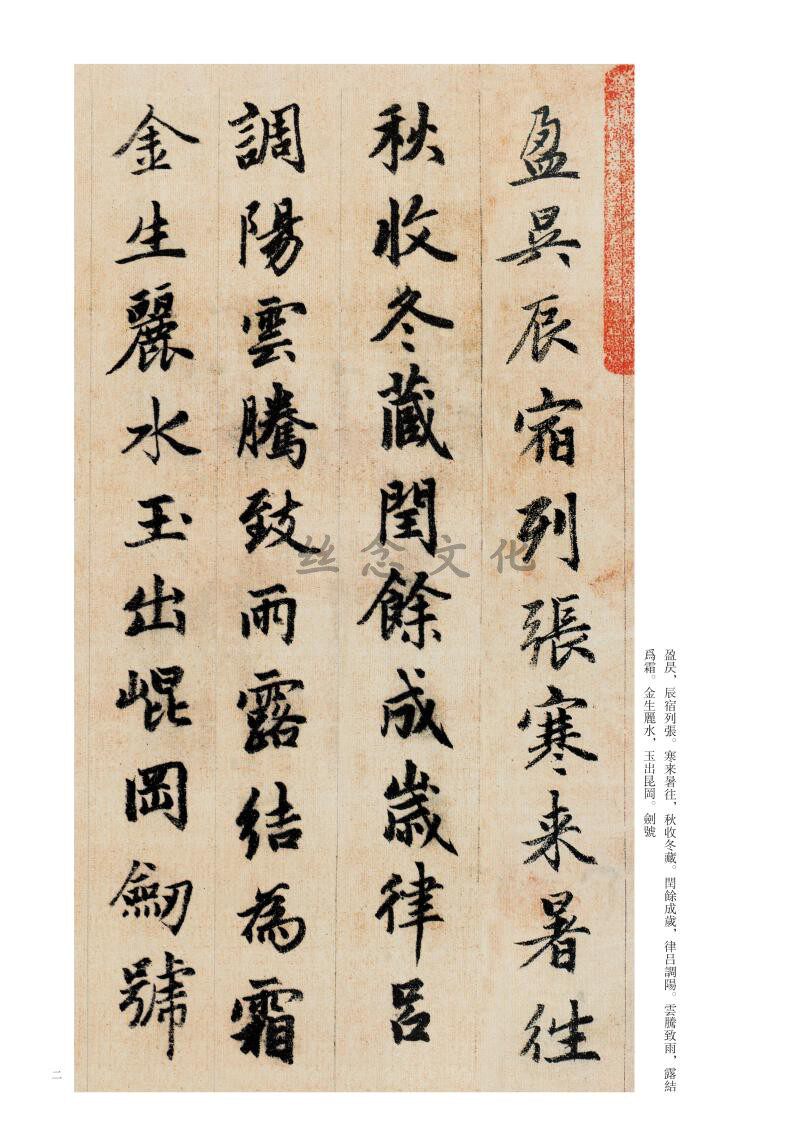 盈昃辰宿列張寒来暑往
秋收冬藏閏餘成歲律呂
調陽雲騰致雨露結為霜
金生麗水玉出崐岡劒號
盈昃、辰宿列張。寒来暑往，秋收冬藏。閏餘成歲，律吕調陽。雲騰致雨，露結
爲霜。金生麗水，玉出昆岡。劍號
丝念文化
二